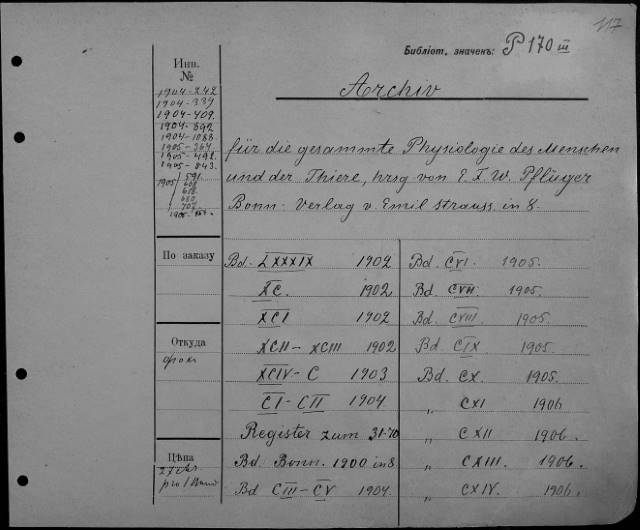 117
Библіот. значекъ: P 170 III
Инв.
№
Archiv
1904-242
1904-337
1904-409.
1904-892
1904-1088
1905-264
1905-492
1905-843.
1905 591
608
618
680
707
für die gesammte Physiologie des Menschen
und der Thiere, hrsg von E. F. W. Pflüger
Bonn. Verlag v. Emil Strauss. in 8.
По заказу
Bd. LXXXIX 1902
XC. 1902
XCI 1902
XCII-XCIII 1902
XCIV-C 1903
CI-CII 1904
Register zum 31-70
Bd. Bonn. 1900 in 8
Bd CIII-CV 1904.
Bd. CVI. 1905.
Bd. CVII. 1905.
Bd. CVIII. 1905.
Bd. CIX 1905.
Bd. CX. 1905.
„ CXI 1906
„ CXII 1906.
„ CXIII. 1906.
„ CXIV. 1906.
Откуда
Цѣна
pro 1 Band